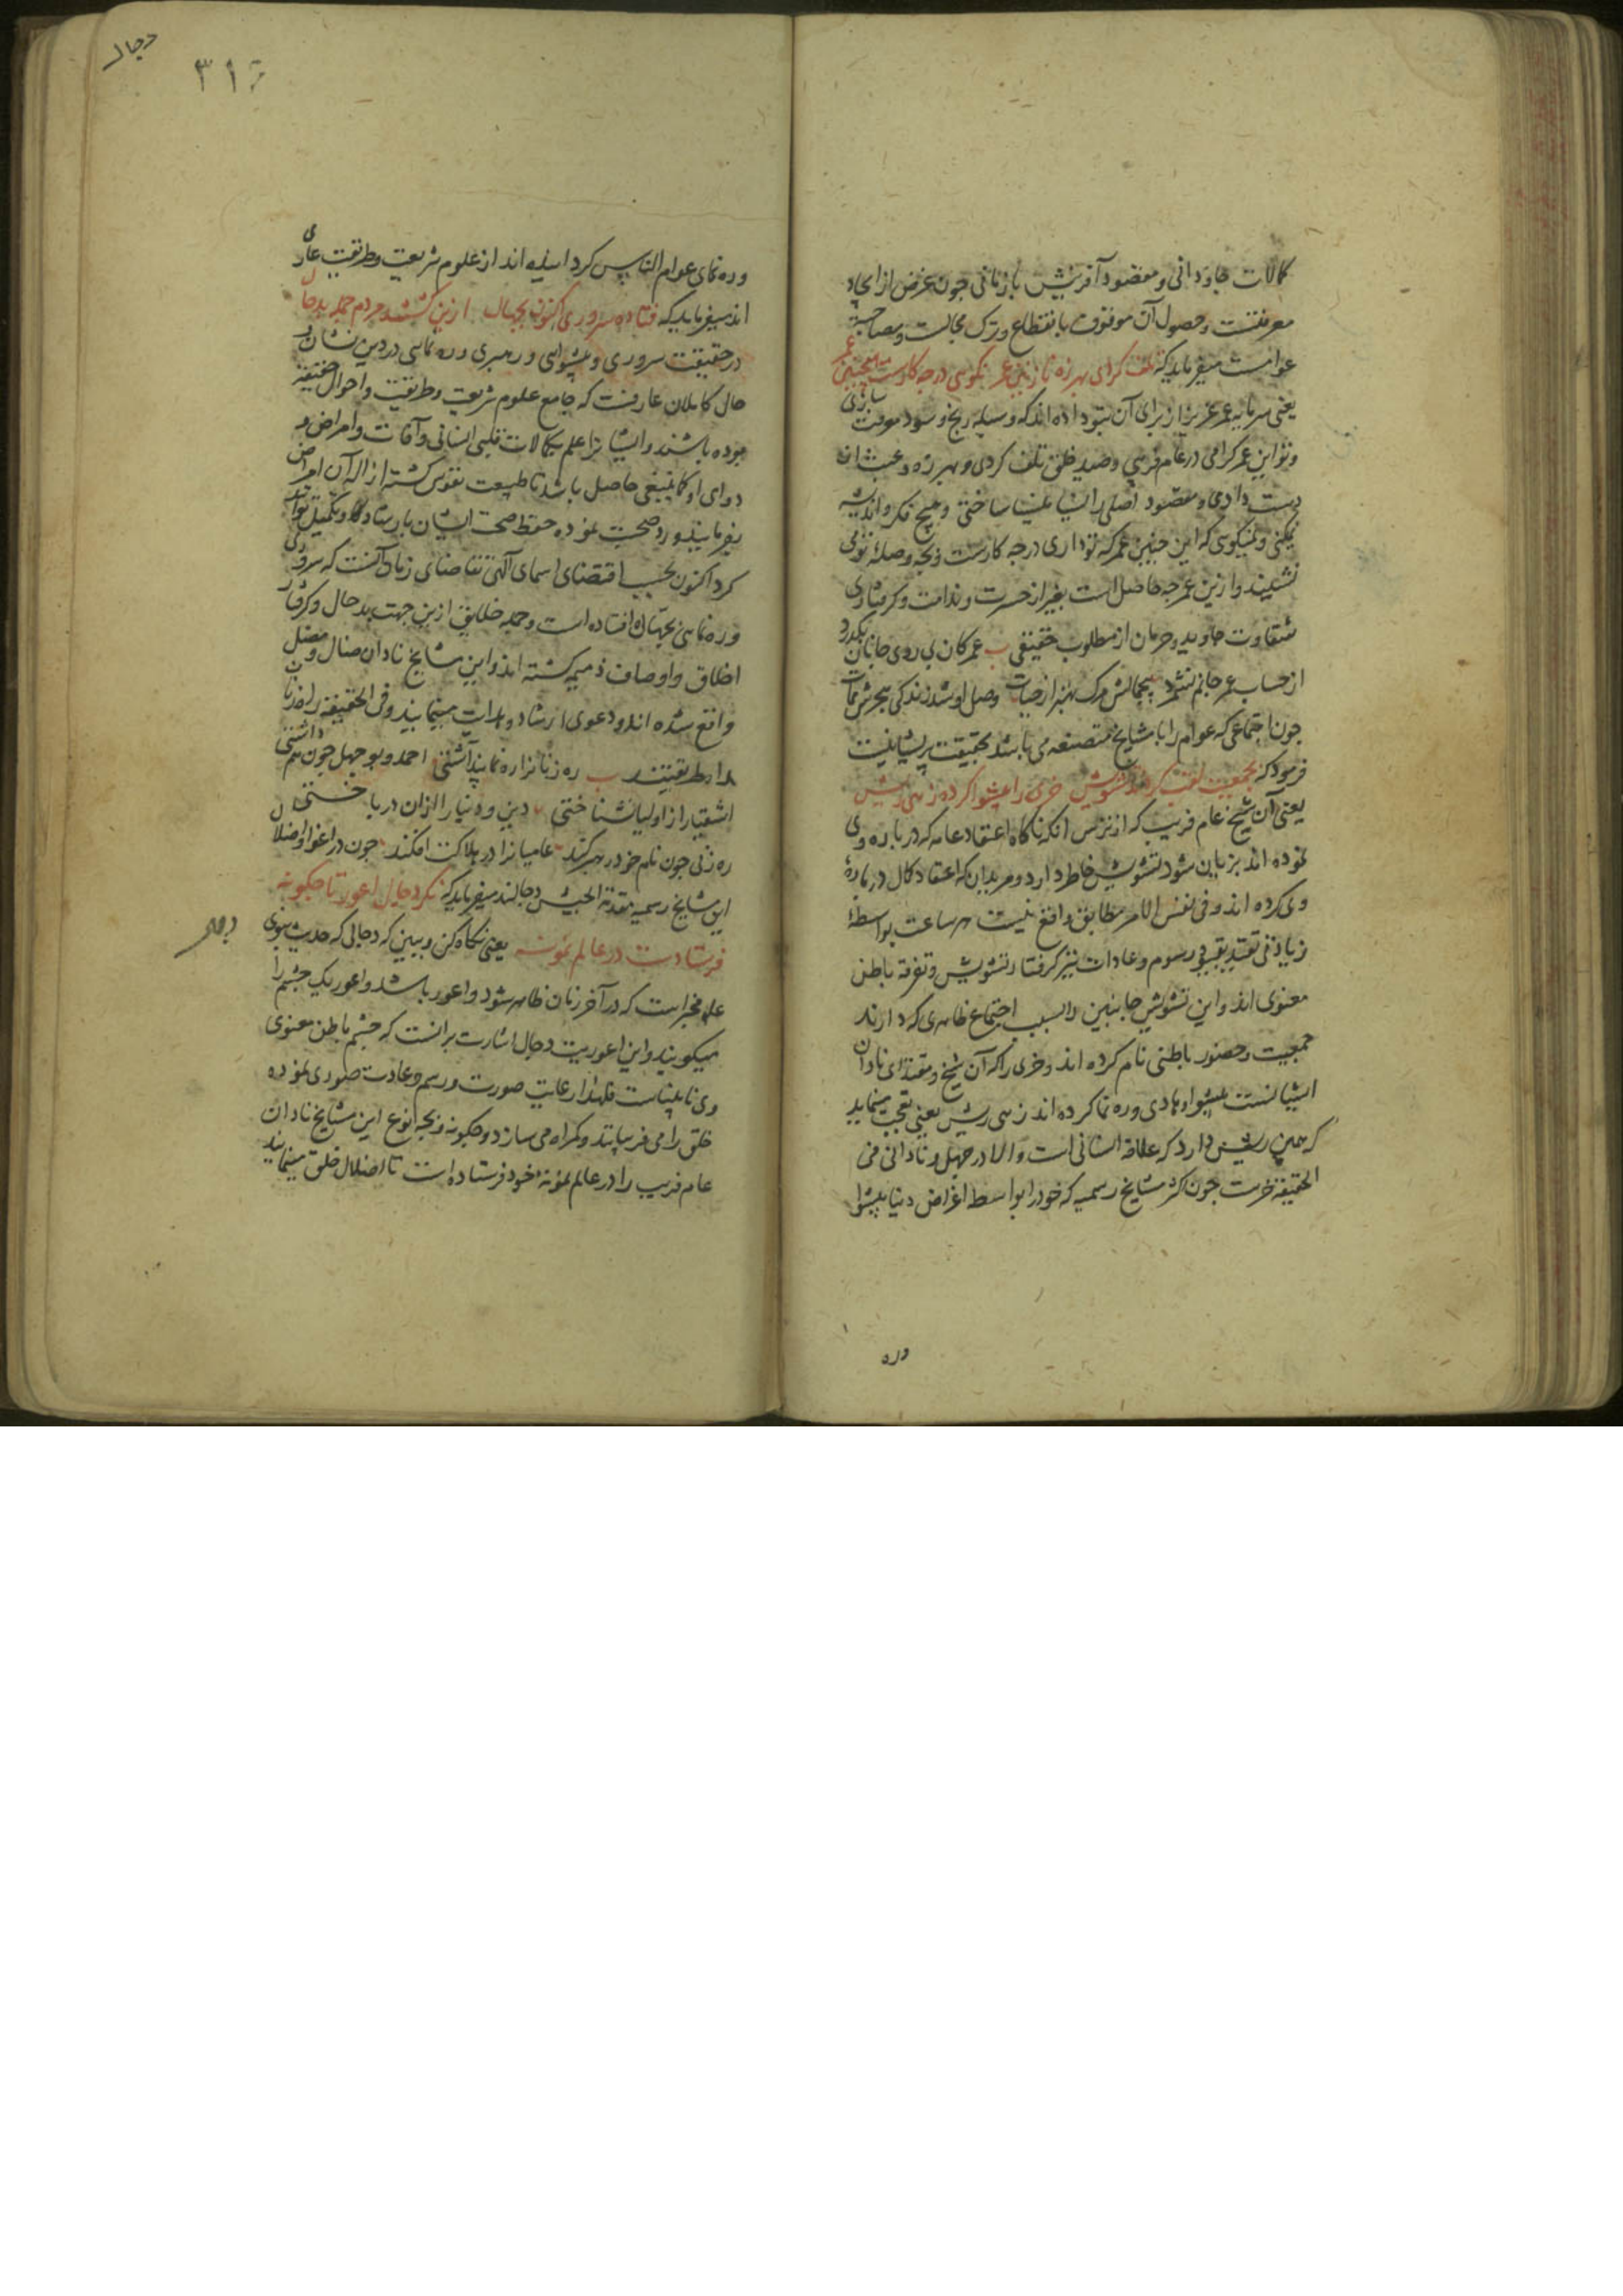 کمالات جاودانی و مقصود آفرینش بازمانی چون غرض از ایجاد
معرفتست و حصول آن موقوف بانقطاع و ترک مجالست و مصاحبة
عوامست میفرماید که تلف کردی بهرزه نازنین عمر نکویی در چه کارست اینچنین عمر
یعنی سرمایه عمر عزیز از برای آن بتو داده اند که وسیله ربح و سود معرفت سازی
و تو این عمر گرامی در عام فریبی و صید خلق تلف کردی و بهرزه و عبث از
دست دادی و مقصود اصلی را نسیا منسیا ساختی و هیچ فکر و اندیشه
نمیکنی و نمیگویی که این چنین عمر که تو داری در چه کارست و بچه وصلهٔ تو می
نشیند و ازین عمر چه حاصل است بغیر از حسرت و ندامت و گرفتاری
شقاوت جاوید و حرمان از مطلوب حقیقی ب عمر کان بی روی جانان بگذرد
از حساب عمر جانم نشمرد بیجمالش مرگ بهتر از حیات وصل او شد زندگی هجرش ممات
چون اجتماعی که عوام را با مشایخ متصنعه می باشد بحقیقت پریشانیست
فرمود که بجمعیت لقب کردند تشویش خری را پیشوا کرده زهی ریش
یعنی آن شیخ عام فریب که از ترس انکه ناگاه اعتقاد عامه که درباره وی
نموده اند بزیان شود تشویش خاطر دارد و مریدان که اعتقاد کمال در بارهٔ
وی کرده اند و فی نفس الامر مطابق واقع نیست هر ساعت بواسطهٔ
زیادتی تقید بقیود رسوم و عادات نیز گرفتار تشویش و تفرقه باطن
معنوی اند و این تشویش جانبین را بسبب اجتماع ظاهری که دارند
جمعیت و حضور باطنی نام کرده اند و خری را که آن شیخ و مقتدای نادان
ایشانست پیشوا و هادی و ره نما کرده اند زهی ریش یعنی تعجب مینماید
که همین ریش دارد که علاقه انسانی است و الا در جهل و نادانی فی
الحقیقه خرست چون اکثر مشایخ رسمیه که خود را بواسطه اغراض دنیا پیشوا
وره
دجال
۳۱۶
وره نمای عوام الناس کرد اینده اند از علوم شریعت و طریقت عاری
اند میفرماید که فتاده سروری اکنون بجهال ازین گشتند مردم جمله بدحال
در حقیقت سروری و پیشوایی و رهبری و ره نمایی در دین نشان و
حال کاملان عارفست که جامع علوم شریعت و طریقت و احوال حقیقة
بوده باشند و ایشانرا علم بکمالات قلبی انسانی و آفات و امراض و
دوای او کما ینبغی حاصل باشد تا طبیعت نفوس گشته ازاله آن امراض
بفرمایند و رد صحت نموده حفظ صحت ایشان بارشاد و تکمیل توانند
کرد اکنون بحسب اقتضای اسمای الهی تقاضای زمان آنست که سروری
وره نمایی بجهال افتاده است و جمله خلایق ازین جهت بدحال و گرفتار
اخلاق و اوصاف ذمیمه گشته اند و این مشایخ نادان ضال و مضل
واقع شده اند و دعوی ارشاد و هدایت مینمایند و فی الحقیقه راه زنان
راه طریقتند ب ره زنانرا ره نما پنداشتی احمد و بوجهل چون هم داشتی
اشقیا را از اولیا نشناختی دین و دنیا را از ان در باختی
ره زنی چون نام خود رهبر کند عامیانرا در هلاکت افکند چون در اغوا و اضلال
این مشایخ رسمیه مقدمة الجیش دجالند میفرماید که نگر دجال اعور تا چگونه
فرستادست در عالم نمونه یعنی نگاه کن و ببین که دجالی که حدیث نبوی
علم مخبر است که در آخر زمان ظاهر شود و اعور باشد و اعور یک چشم را
میگویند و این اعوریت دجال اشارت برانست که چشم باطن معنوی
وی نابیناست فلهذا رعایت صورت و رسم و عادت صوری نموده
خلق را می فریبانند و گمراه می سازد و چگونه و بچه نوع این مشایخ نادان
عام فریب را در عالم نمونهٔ خود فرستاده است تا اضلال خلق مینمایند
دجال